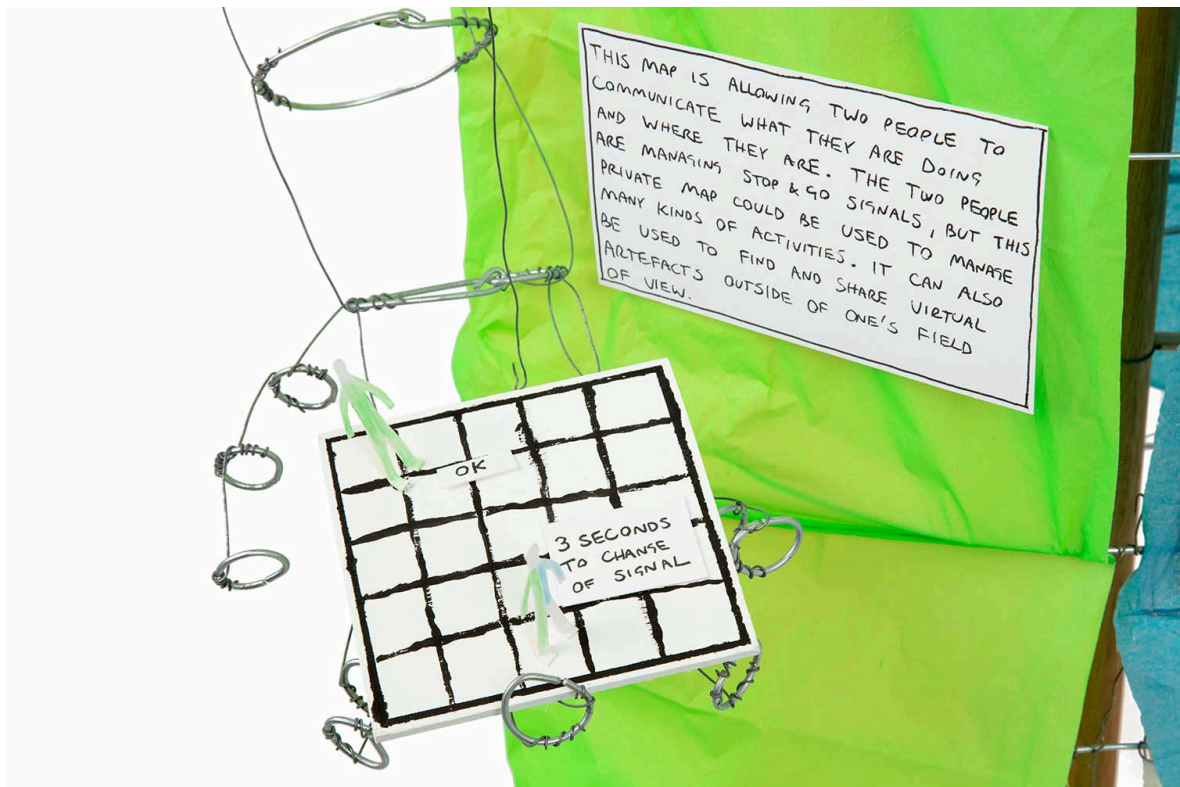 THIS MAP IS ALLOWING TWO PEOPLE TO
COMMUNICATE WHAT THEY ARE DOING
AND WHERE THEY ARE. THE TWO PEOPLE
ARE MANAGING STOP & GO SIGNALS, BUT THIS
PRIVATE MAP COULD BE USED TO MANAGE
MANY KINDS OF ACTIVITIES. IT CAN ALSO
BE USED TO FIND AND SHARE VIRTUAL
ARTEFACTS OUTSIDE OF ONE'S FIELD
OF VIEW.
OK
3 SECONDS
TO CHANGE
OF SIGNAL